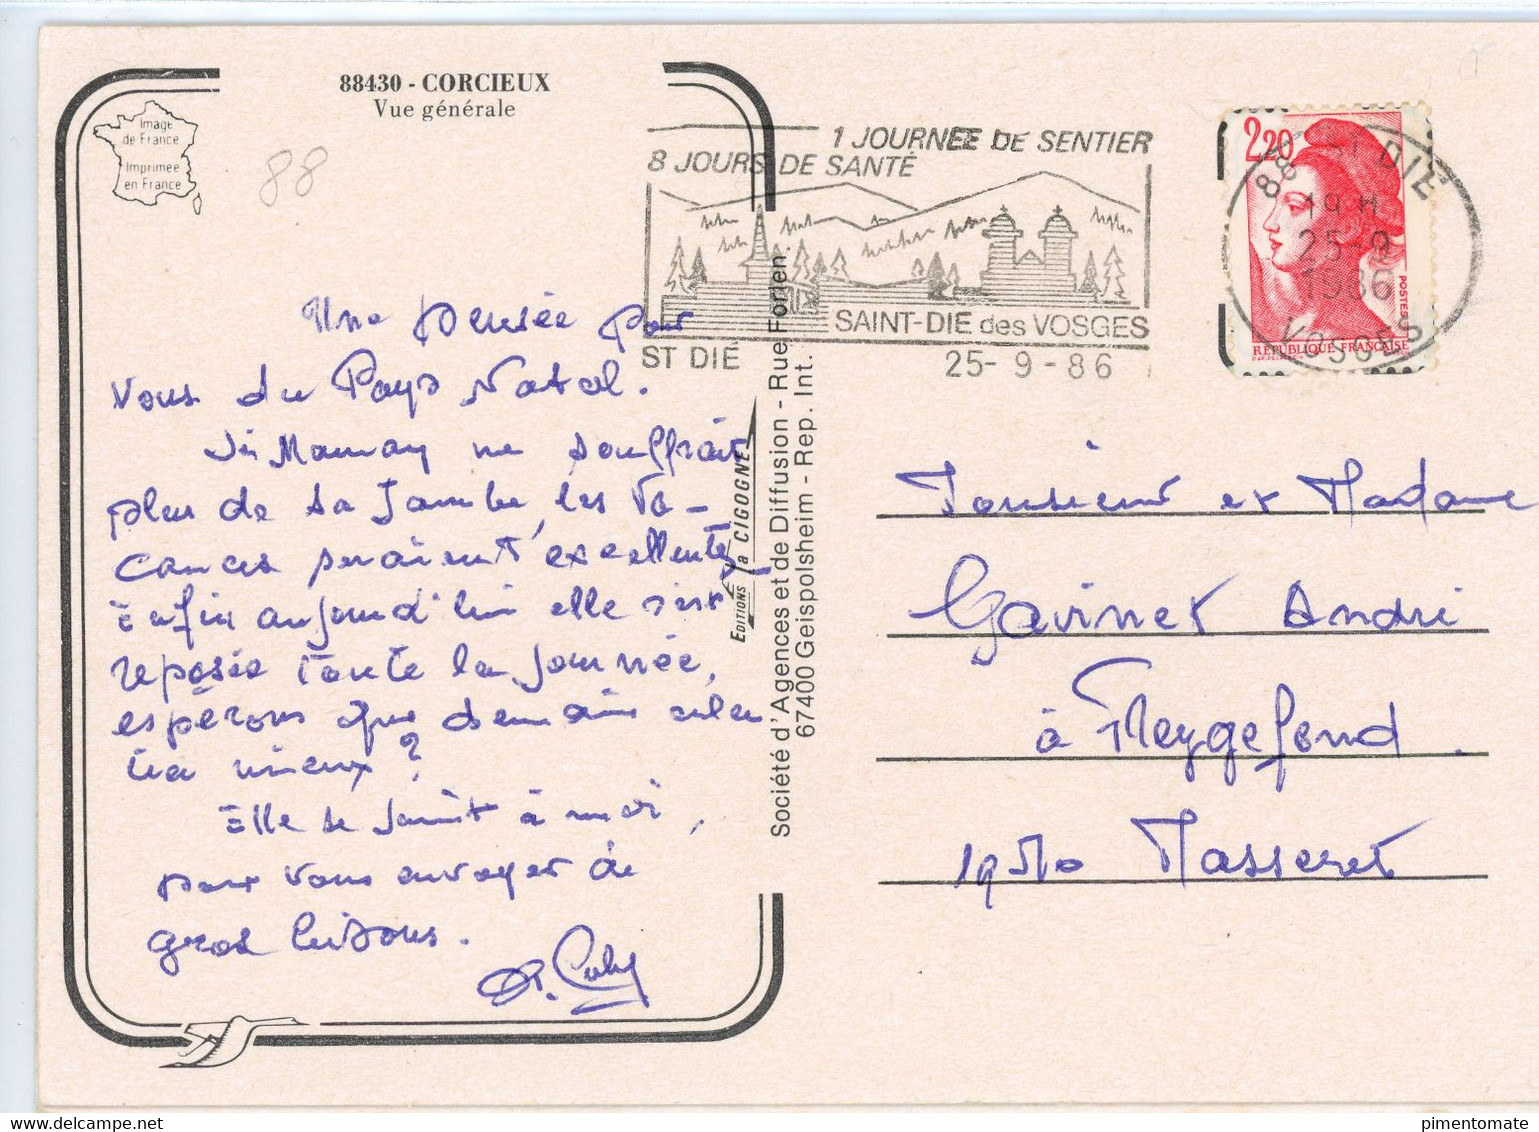 88430 - CORCIEUX
Vue générale
Image
de France
Imprimée
en France
88
1 JOURNEE DE SENTIER
8 JOURS DE SANTÉ
SAINT-DIE des VOSGES
ST DIÉ
25- 9 - 86
2,20
POSTES
REPUBLIQUE FRANÇAISE
88 ST DIE
19 H
25-9
1986
VOSGES
Une pensée pour
vous du Pays Natal.
Si Mamay ne souffrait
plus de sa Jambe, les Va-
cances seraient excellentes
Enfin aujourd'hui elle s'est
reposée toute la journée,
espérons que demain cela
ira mieux ?
Elle se Joint à moi,
pour vous envoyer de
gros bisous.
Editions "la CIGOGNE"
Société d'Agences et de Diffusion - Rue Forlen
67400 Geispolsheim - Rep. Int.
Monsieur et Madame
Gavinet André
à Freygefond
19510 Masseret
pimentomate